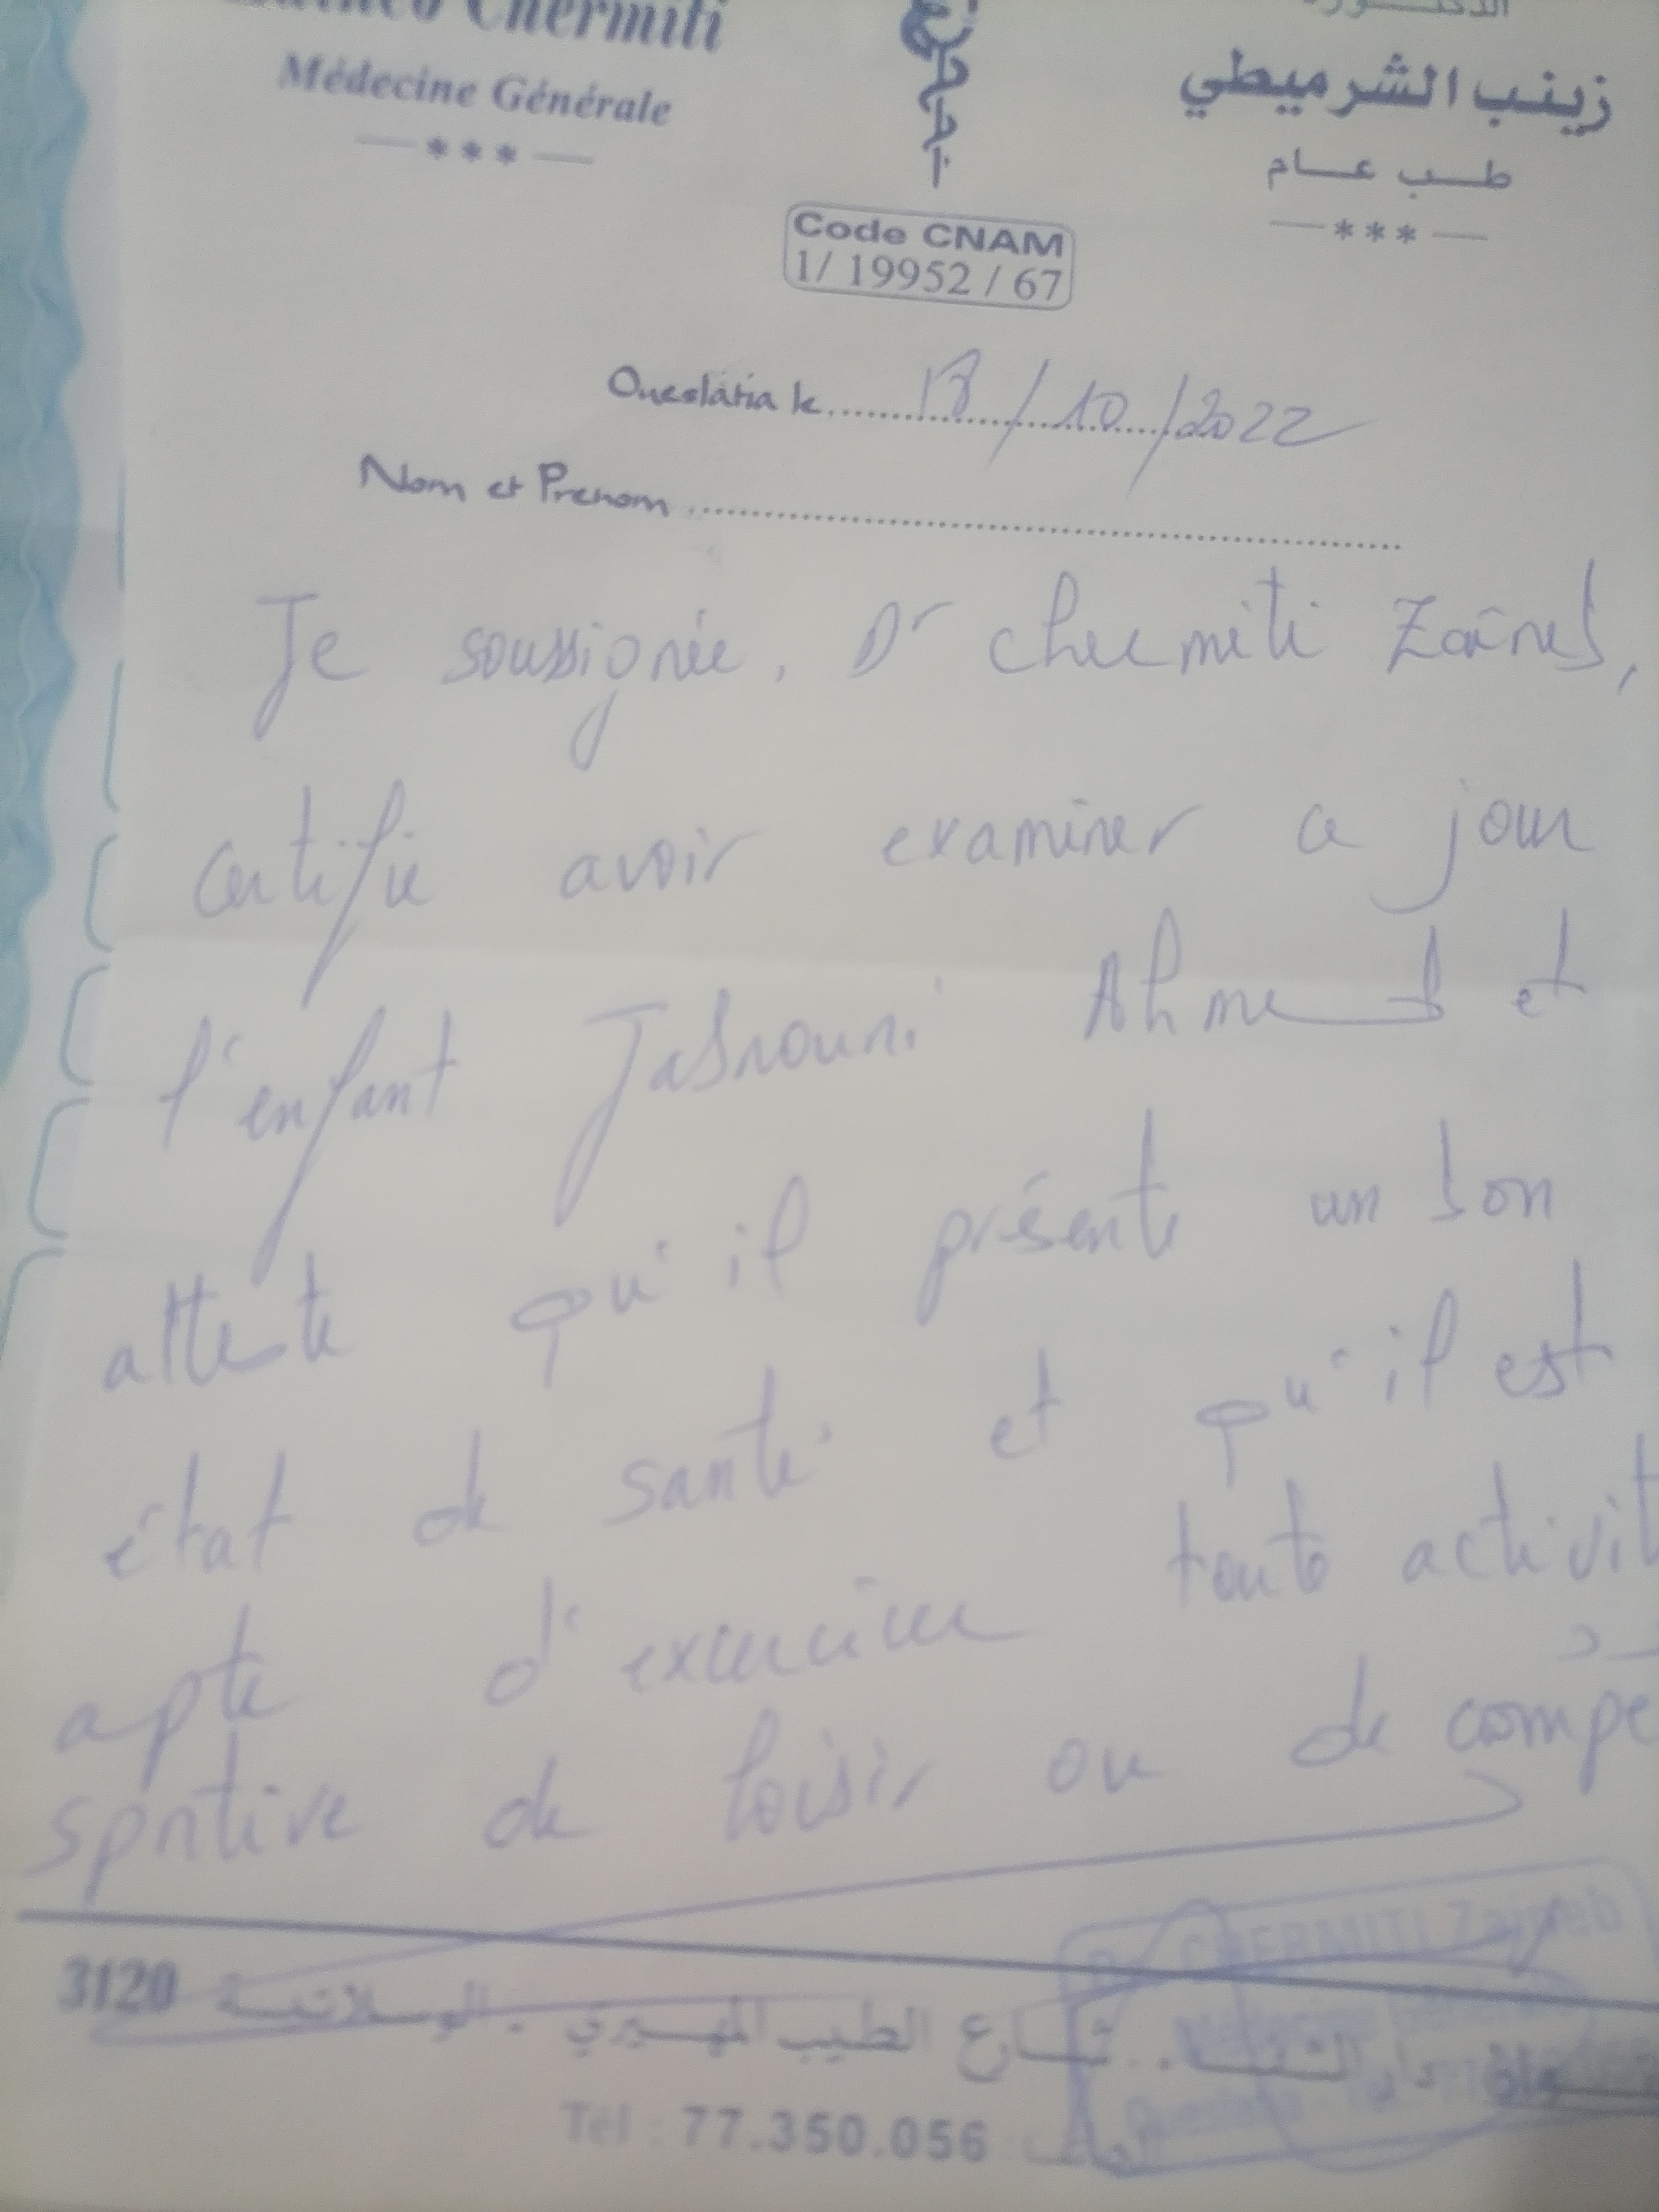 Chermiti
Médecine Générale
***
زينب الشرميطي
طب عام
***
Code CNAM
1/ 19952 / 67
Oueslatia le 18/10/2022
Nom et Prenom
Je soussignée, Dr Chermiti Zaïneb,
certifie avoir examiner ce jour
l'enfant Jabnouni Ahmed et
atteste qu'il présente un bon
état de santé et qu'il est
apte d'exercicer toute activit
sportive de loisir ou de compé
CHERMITI Zaineb
3120 شارع الطيب المهيري - الوسلاتية
Tél : 77.350.056